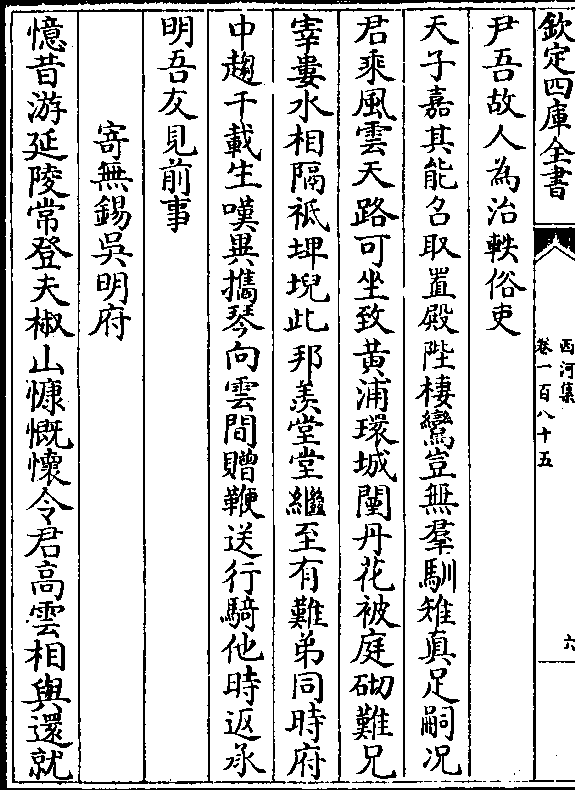 欽定四庫全書
西河集
卷一百八十五
六
尹吾故人為治軼俗吏
天子嘉其能召取置殿陛棲鸞豈無羣馴雉真足嗣况
君乘風雲天路可坐致黄浦環城闉丹花被庭砌難兄
宰婁水相隔祗埤堄此邦羨堂堂繼至有難弟同時府
中趨千載生嘆異攜琴向雲間贈鞭送行騎他時返承
明吾友見前事
寄無錫吳明府
憶昔游延陵常登夫椒山慷慨懷令君高雲相與還就